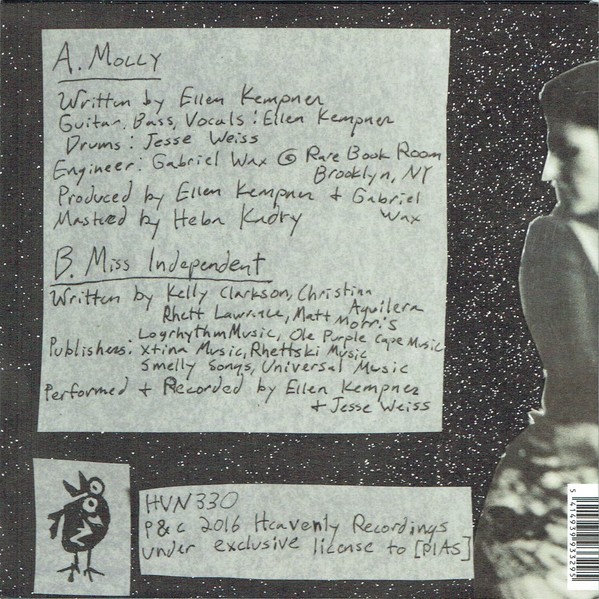 A. Molly
Written by Ellen Kempner
Guitar, Bass, Vocals: Ellen Kempner
Drums: Jesse Weiss
Engineer: Gabriel Wax @ Rare Book Room
Brooklyn, NY
Produced by Ellen Kempner + Gabriel
Wax
Mastered by Heba Kadry
B. Miss Independent
Written by Kelly Clarkson, Christina
Aguilera
Rhett Lawrence, Matt Morris
Publishers: LogrhythmMusic, Ole Purple Cape Music
Xtina Music, Rhettski Music
Smelly Songs, Universal Music
Performed + Recorded by Ellen Kempner
+ Jesse Weiss
HVN330
P & C 2016 Heavenly Recordings
under exclusive license to [PIAS]
5 414939 933295